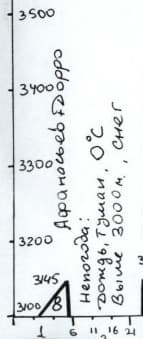 3500
3400
3300
3200
3100
3145
В
Афанасьев + Дорро
Непогода:
Дождь, туман, 0°C
Выше 3000 м, снег
1 6 11 16 21